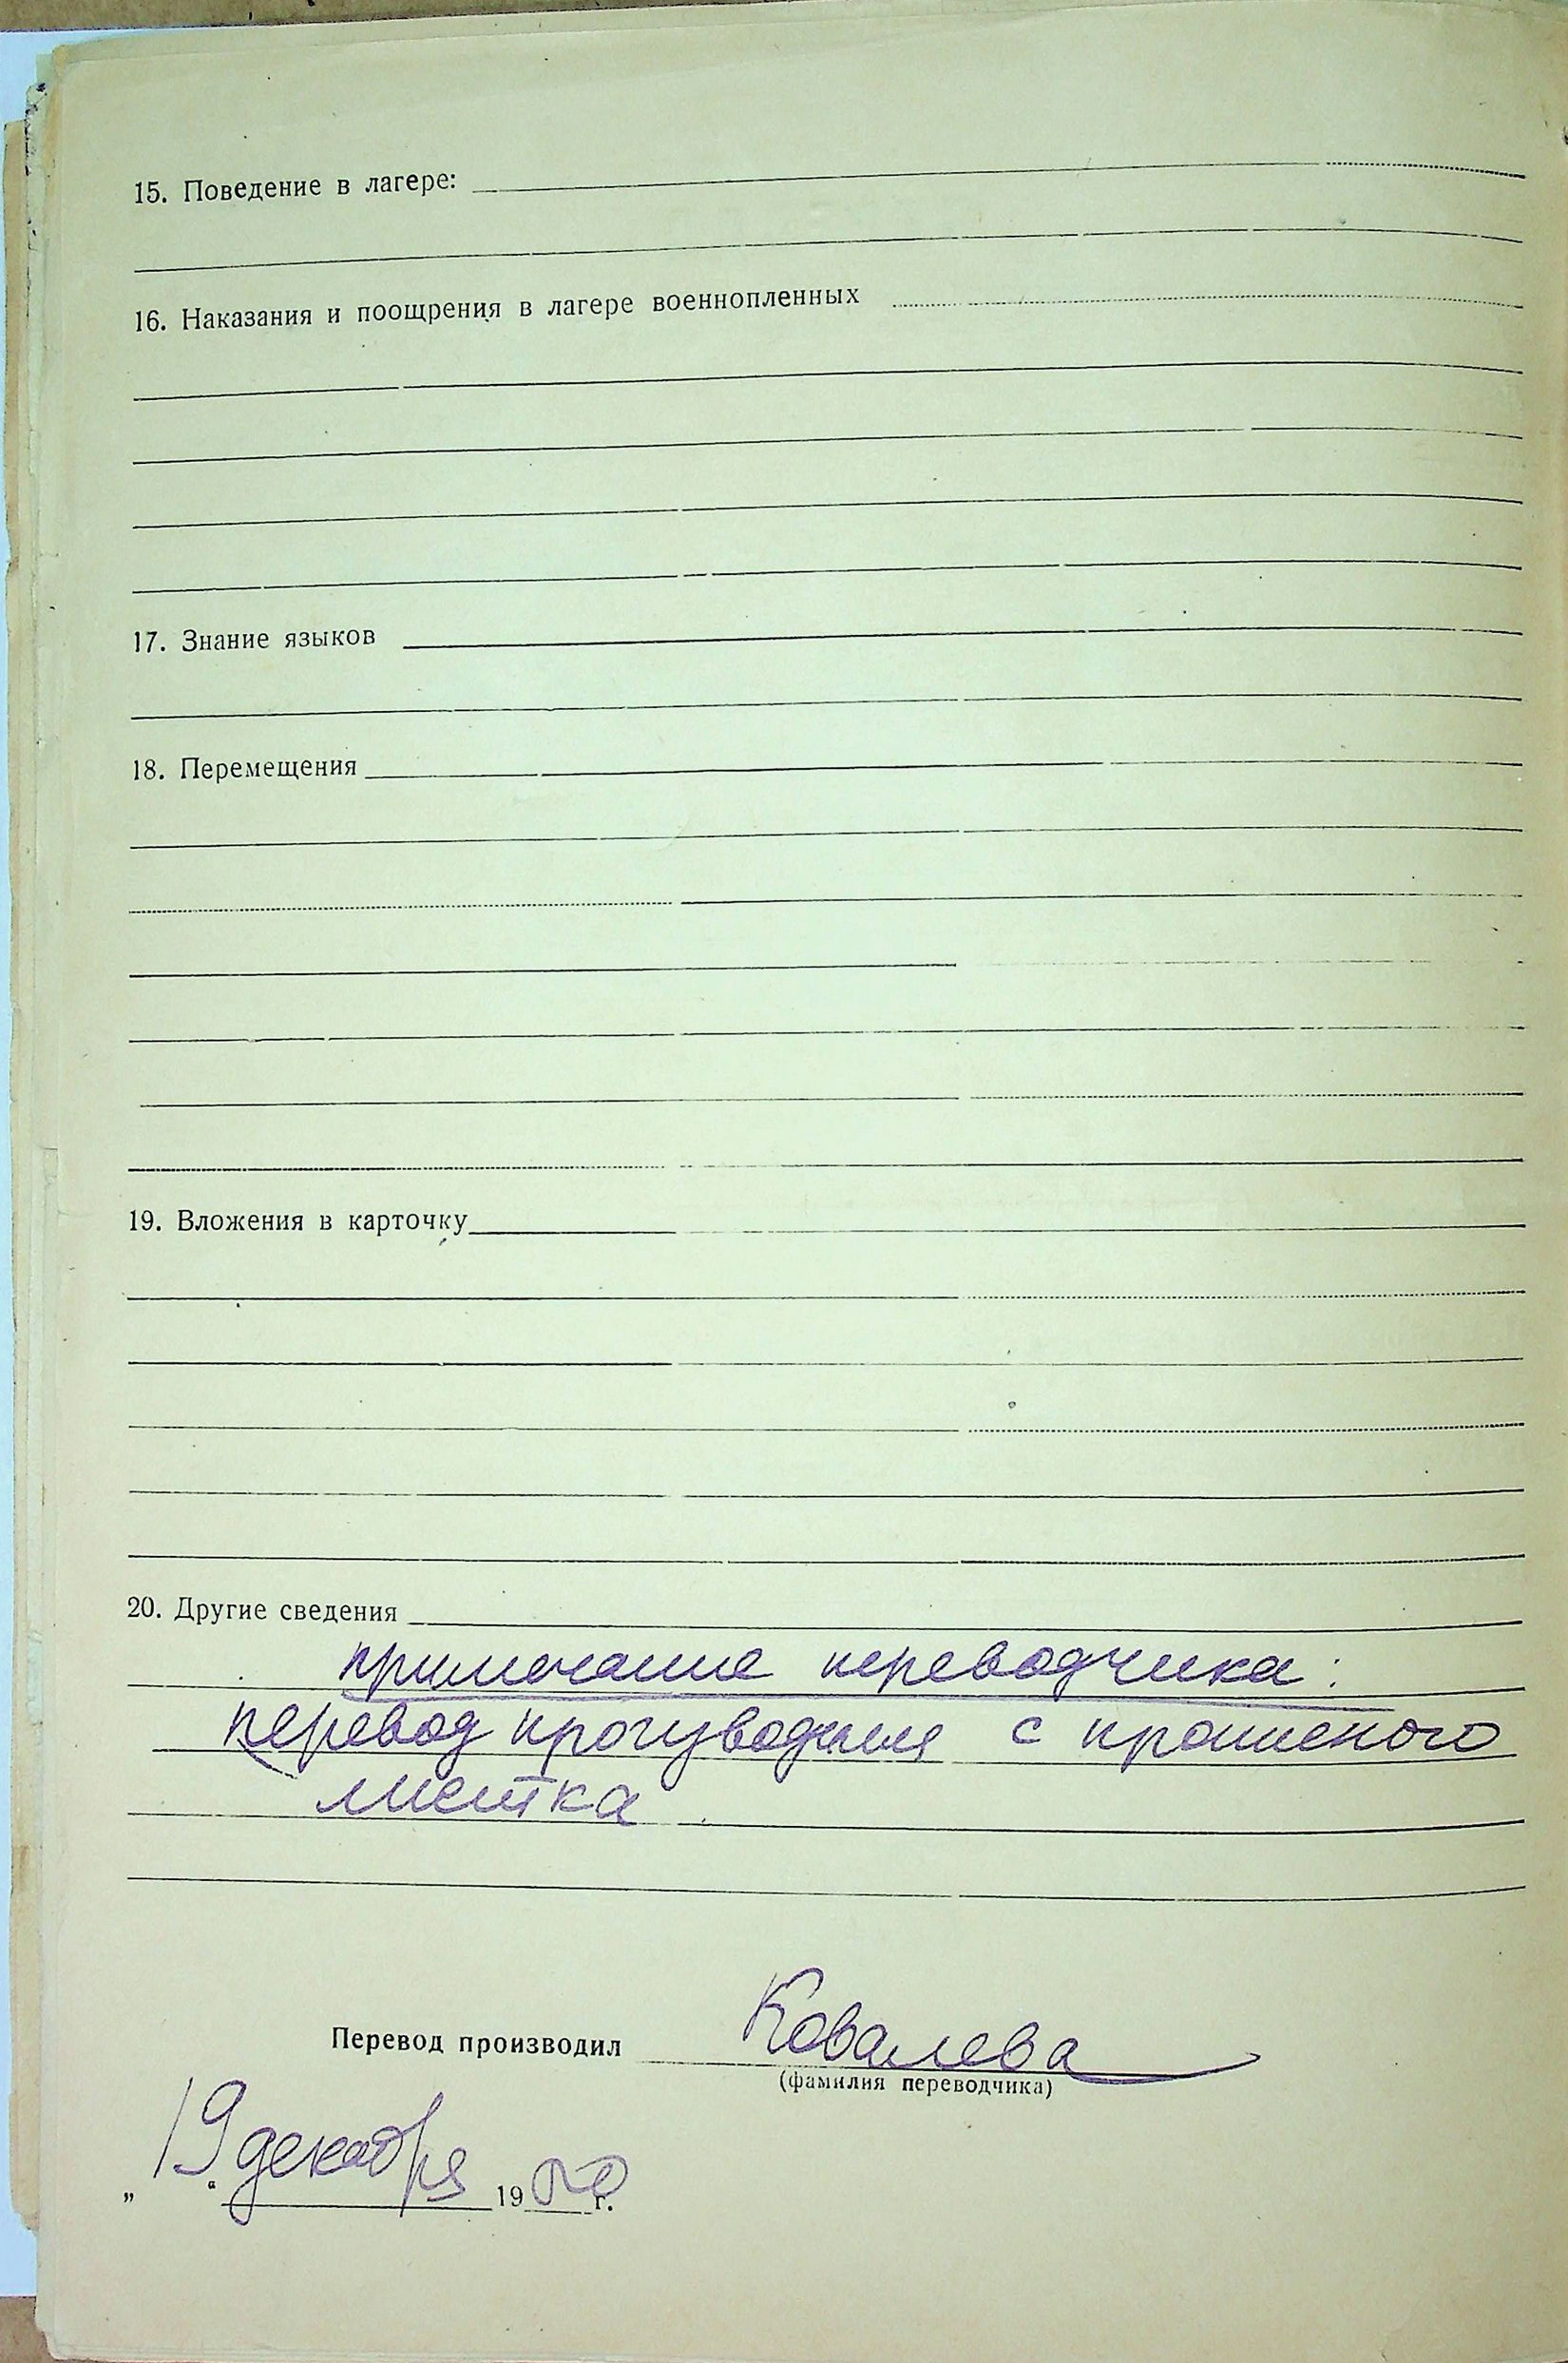 15. Поведение в лагере:
16. Наказания и поощрения в лагере военнопленных
17. Знание языков
18. Перемещения
19. Вложения в карточку
20. Другие сведения
примечание переводчика:
перевод производился с
листка
Перевод производил Ковалева
(фамилия переводчика)
„19“ декабря 1950 г.